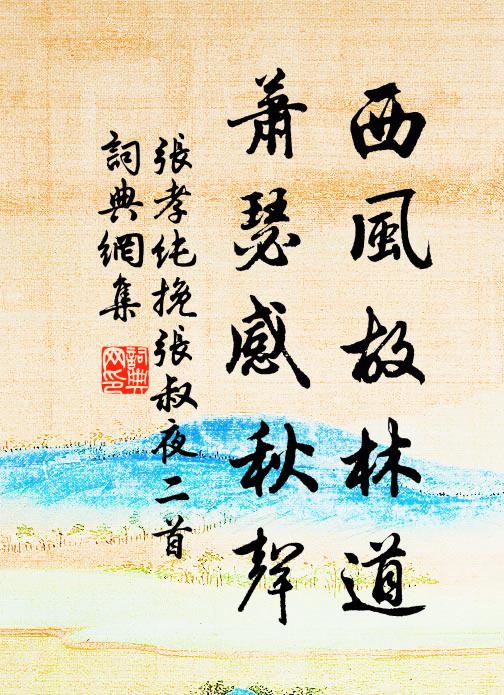 西風故林道
蕭瑟感秋聲
張孝純挽張叔夜二首
詞典網集
詞典网印